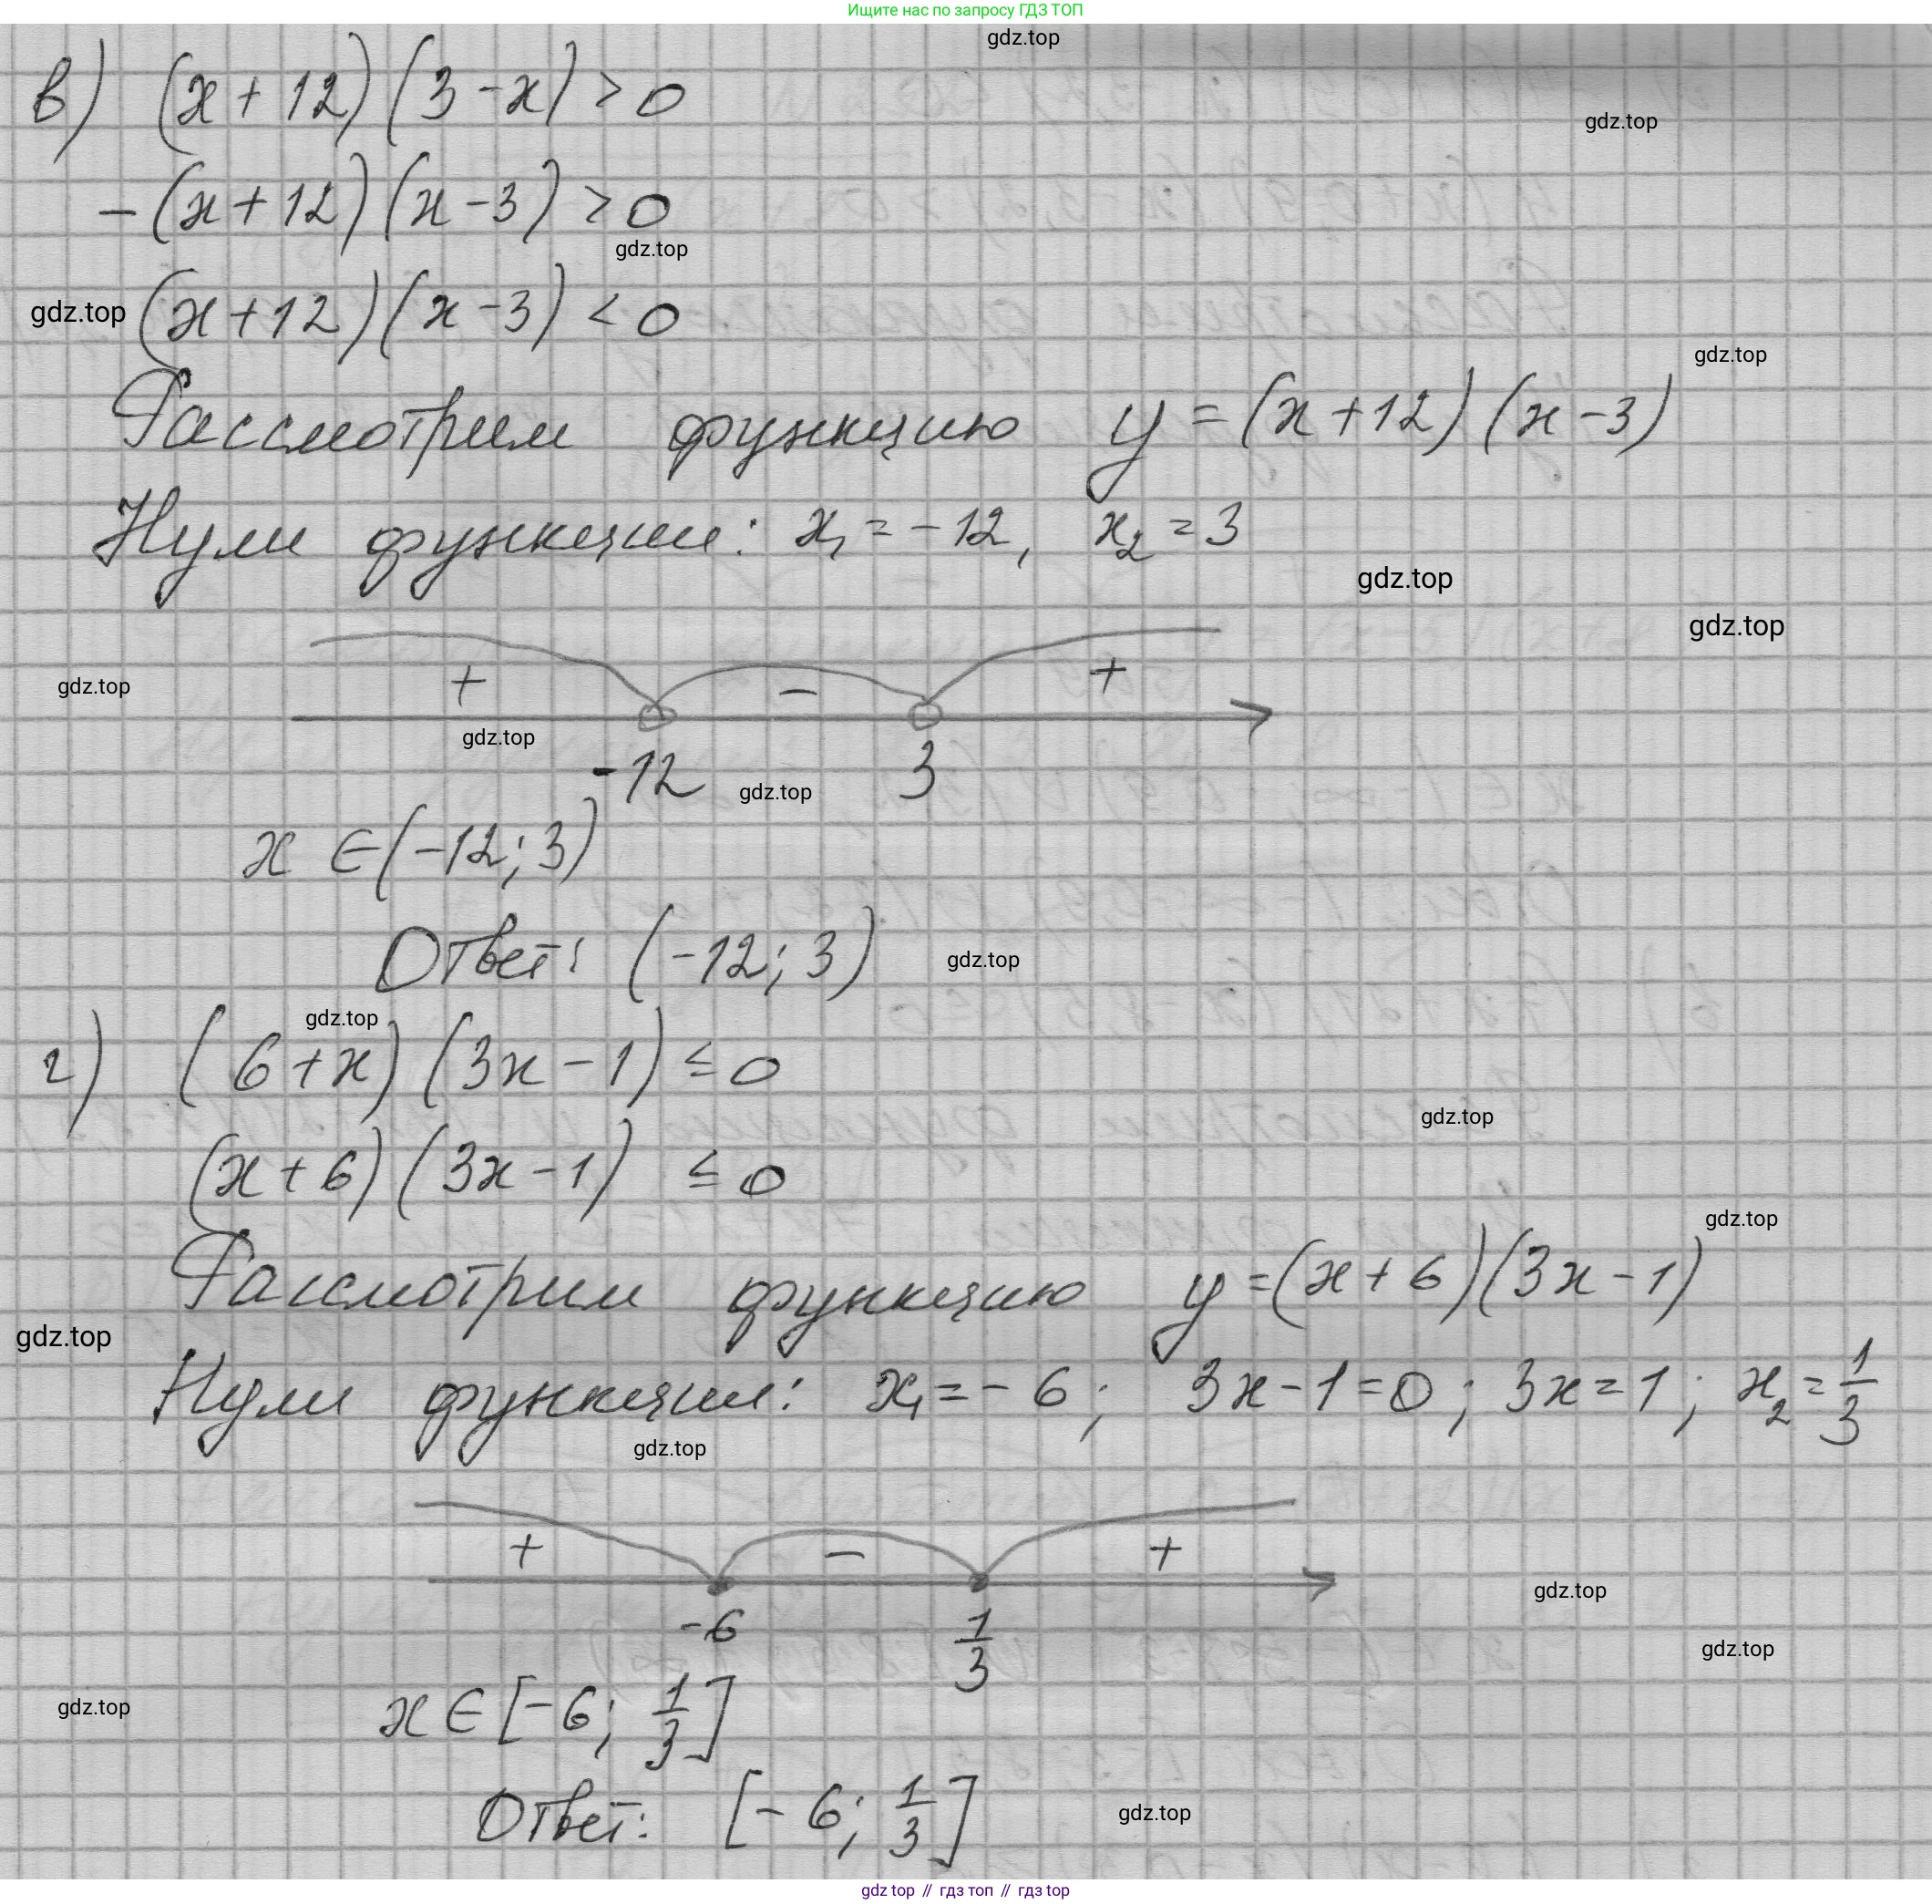 Ищите нас по запросу ГДЗ ТОП
gdz.top
в) (x + 12)(3 - x) > 0
gdz.top
- (x + 12)(x - 3) > 0
gdz.top
gdz.top (x + 12)(x - 3) < 0
gdz.top
Рассмотрим функцию y = (x + 12)(x - 3)
Нули функции: x₁ = - 12, x₂ = 3
gdz.top
gdz.top
gdz.top + - +
gdz.top
-12 3
gdz.top
x ∈ (-12; 3)
Ответ: (-12; 3) gdz.top
gdz.top
г) (6 + x)(3x - 1) ≤ 0
gdz.top
(x + 6)(3x - 1) ≤ 0
gdz.top
Рассмотрим функцию y = (x + 6)(3x - 1)
gdz.top
Нули функции: x₁ = - 6; 3x - 1 = 0; 3x = 1; x₂ = 1/3
gdz.top
+ - +
gdz.top
-6 1/3
gdz.top
gdz.top
x ∈ [-6; 1/3]
Ответ: [- 6; 1/3] gdz.top
gdz top // гдз топ // гдз top